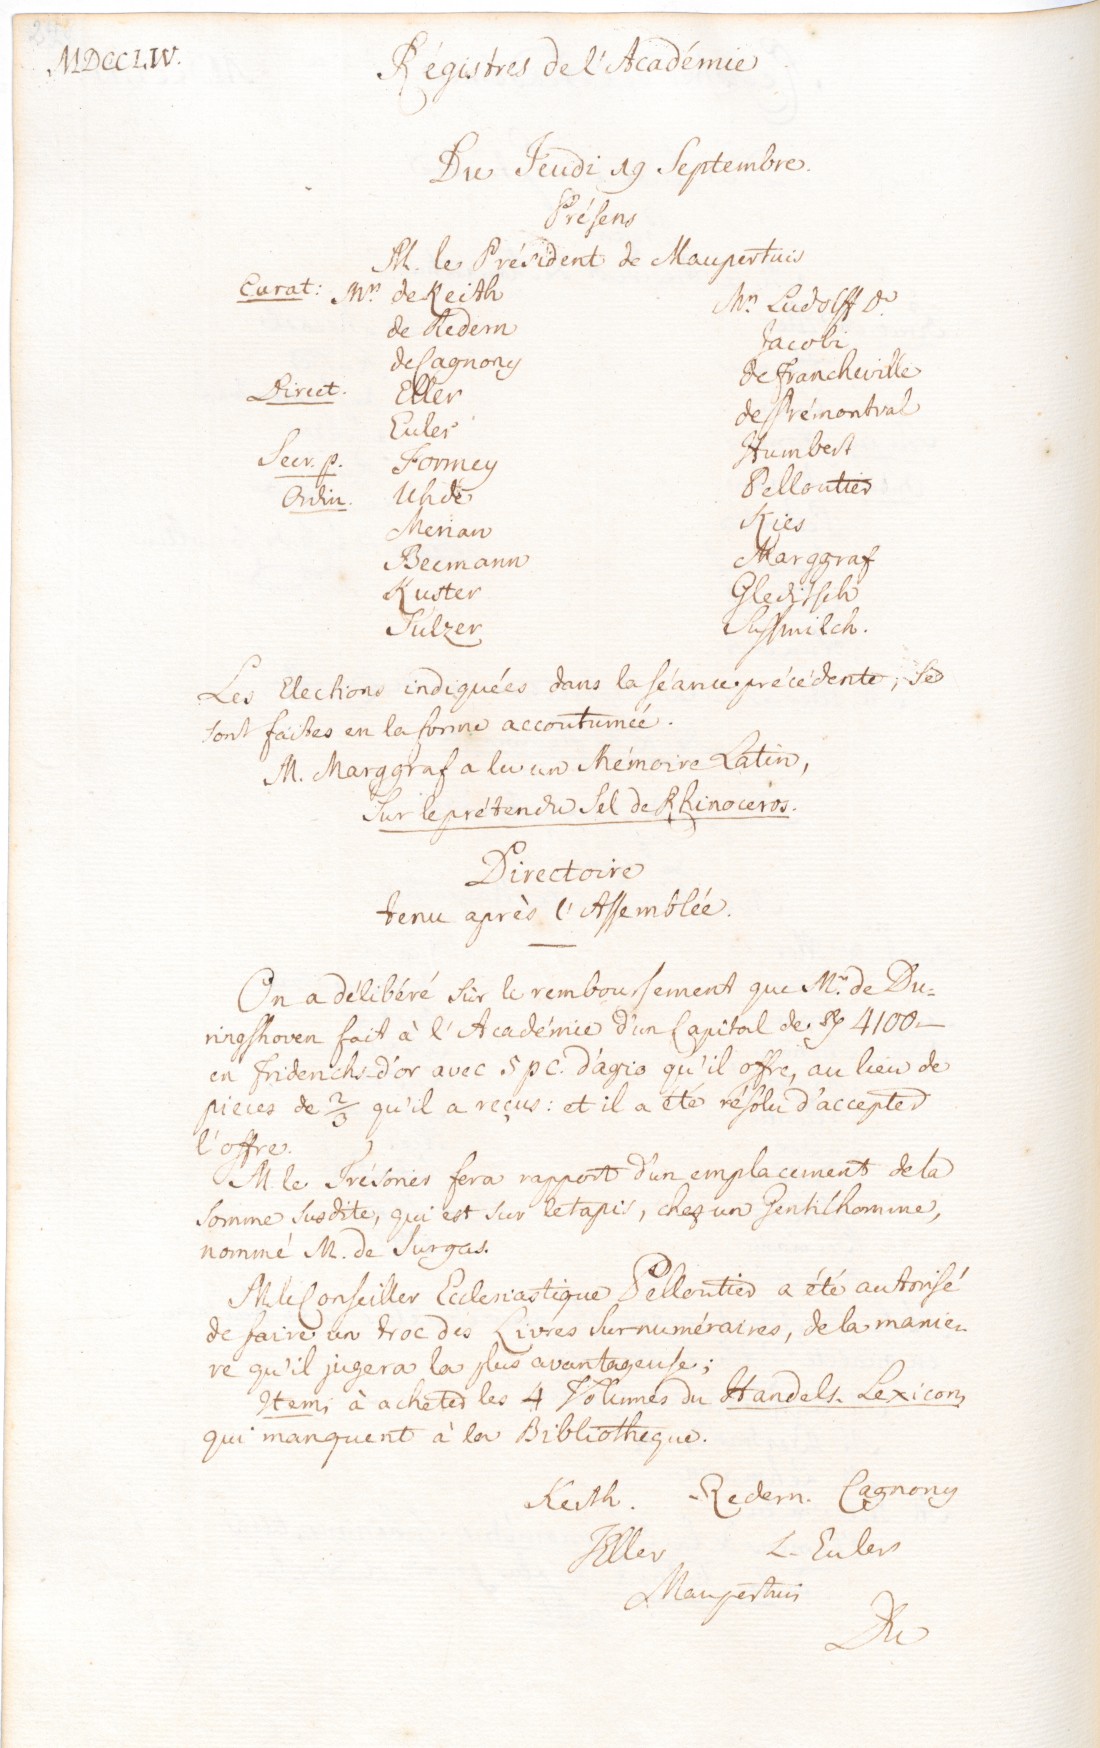 MDCCLIV.
Régistres de l'Académie
Du Jeudi 19 Septembre.
Présens
M. le Président de Maupertuis
Curat: Mrs de Keith
de Redern
de Cagnony
Direct. Eller
Euler
Secr. p. Formey
Ordin. Uhde
Merian
Becmann
Kuster
Sulzer
Mrs Ludolff D.
Jacobi
de Francheville
de Prémontval
Humbert
Pelloutier
Kies
Marggraf
Gleditsch
Sussmilch.
Les Elections indiquées dans la séance précédente, se
sont faites en la forme accoutumée.
M. Marggraf a lu un Mémoire Latin,
Sur le prétendu Sel de Rhinoceros.
Directoire
tenu après l'Assemblée.
On a délibéré sur le remboursement que Mr. de Du-
ringshoven fait à l'Académie d'un Capital de 4100-
en Friderichs-d'or avec 5 pc. d'agio qu'il offre, au lieu de
pieces de 2/3 qu'il a reçus: et il a été résolu d'accepter
l'offre.
M. le Trésorier fera rapport d'un emplacement de la
somme susdite, qui est sur le tapis, chez un Gentilhomme,
nommé M. de Surgas.
M. le Conseiller Ecclesiastique Pelloutier a été autorisé
de faire un troc des Livres surnuméraires, de la manie-
re qu'il jugera la plus avantageuse;
Item, à acheter les 4 Volumes du Handels-Lexicon,
qui manquent à la Bibliotheque.
Keith. Redern. Cagnony
Eller L. Euler
Maupertuis
Du